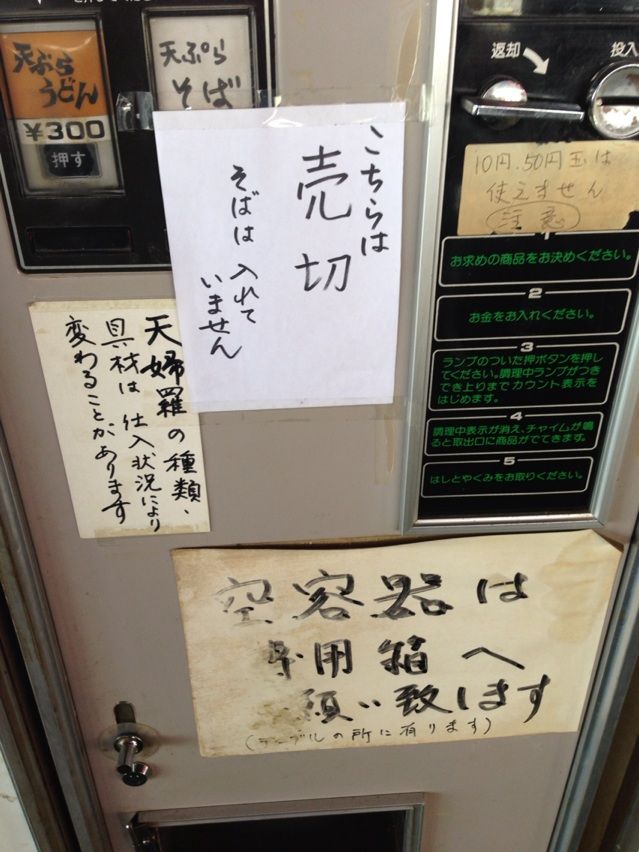 天ぷら
うどん
¥300
押す
天ぷら
そば
返却
投入
こちらは
売切
そばは入れて
いません
10円.50円玉は
使えません
注意
1
お求めの商品をお決めください。
2
お金をお入れください。
3
ランプのついた押ボタンを押し
てください。調理中ランプがつき
でき上りまでカウント表示を
はじめます。
4
調理中表示が消え、チャイムが鳴
ると取出口に商品がでてきます。
5
はしとやくみをお取りください。
天婦羅の種類、
具材は仕入状況により
変わることがあります
空容器は
専用箱へ
願い致します
(テーブルの所に有ります)